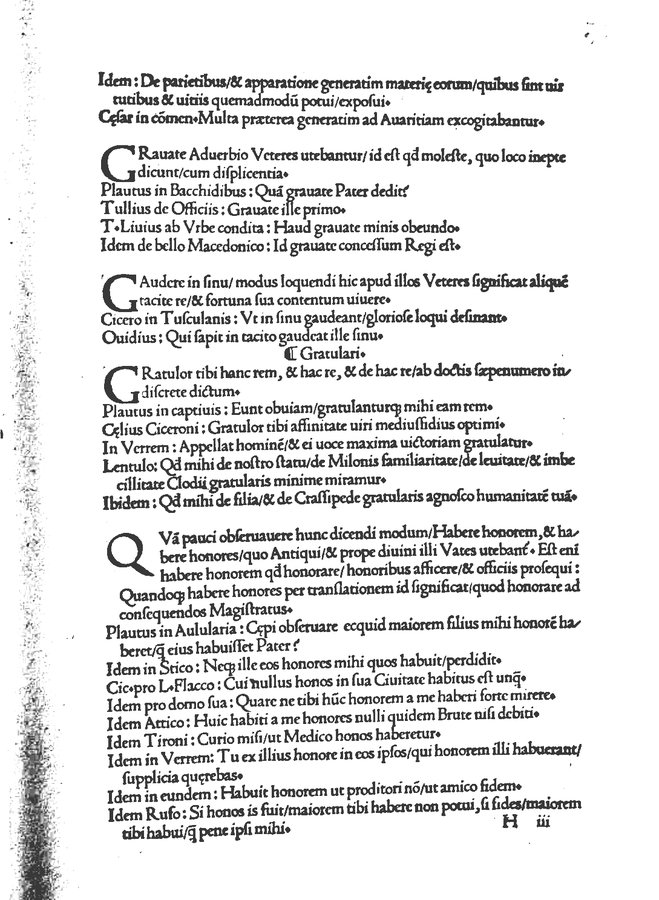 Idem : De parietibus/& apparatione generatim materię eorum/quibus ſint uir
tutibus & uitiis quemadmodū potui/expoſui.
Cęſar in cōmen.Multa præterea generatim ad Auaritiam excogitabantur.
GRauate Aduerbio Veteres utebantur/ id eſt qđ moleſte, quo loco inepte
dicunt/cum diſplicentia.
Plautus in Bacchidibus : Quā grauate Pater dedit?
Tullius de Officiis : Grauate ille primo.
T.Liuius ab Vrbe condita : Haud grauate minis obeundo.
Idem de bello Macedonico : Id grauate conceſſum Regi eſt.
GAudere in ſinu/ modus loquendi hic apud illos Veteres ſignificat aliquē
tacite re/& fortuna ſua contentum uiuere.
Cicero in Tuſculanis : Vt in ſinu gaudeant/glorioſe loqui deſinant.
Ouidius : Qui ſapit in tacito gaudeat ille ſinu.
¶ Gratulari.
GRatulor tibi hanc rem, & hac re, & de hac re/ab doctis ſæpenumero in/
diſcrete dictum.
Plautus in captiuis : Eunt obuiam/gratulanturꝙ mihi eam rem.
Cęlius Ciceroni : Gratulor tibi affinitate uiri mediuſſidius optimi.
In Verrem : Appellat hominē/& ei uoce maxima uictoriam gratulatur.
Lentulo: Qđ mihi de noſtro ſtatu/de Milonis familiaritate/de leuitate/& imbe
cillitate Clodii gratularis minime miramur.
Ibidem : Qđ mihi de filia/& de Craſſipede gratularis agnoſco humanitatē tuā.
QVā pauci obſeruauere hunc dicendi modum/Habere honorem,& ha/
bere honores/quo Antiqui/& prope diuini illi Vates utebant. Eſt enī
habere honorem qđ honorare/ honoribus afficere/& officiis proſequi :
Quandoꝙ habere honores per tranſlationem id ſignificat/quod honorare ad
conſequendos Magiſtratus.
Plautus in Aulularia : Cępi obſeruare ecquid maiorem filius mihi honorē ha/
beret/q̃ eius habuiſſet Pater?
Idem in Stico : Neꝙ ille eos honores mihi quos habuit/perdidit.
Cic.pro L.Flacco : Cui nullus honos in ſua Ciuitate habitus eſt unq̃.
Idem pro domo ſua : Quare ne tibi hūc honorem a me haberi forte mirere.
Idem Attico : Huic habiti a me honores nulli quidem Brute niſi debiti.
Idem Tironi : Curio miſi/ut Medico honos haberetur.
Idem in Verrem: Tu ex illius honore in eos ipſos/qui honorem illi habuerant/
ſupplicia quęrebas.
Idem in eundem : Habuit honorem ut proditori nō/ut amico fidem.
Idem Rufo : Si honos is fuit/maiorem tibi habere non potui, ſi fides/maiorem
tibi habui/q̃ pene ipſi mihi.
H iii